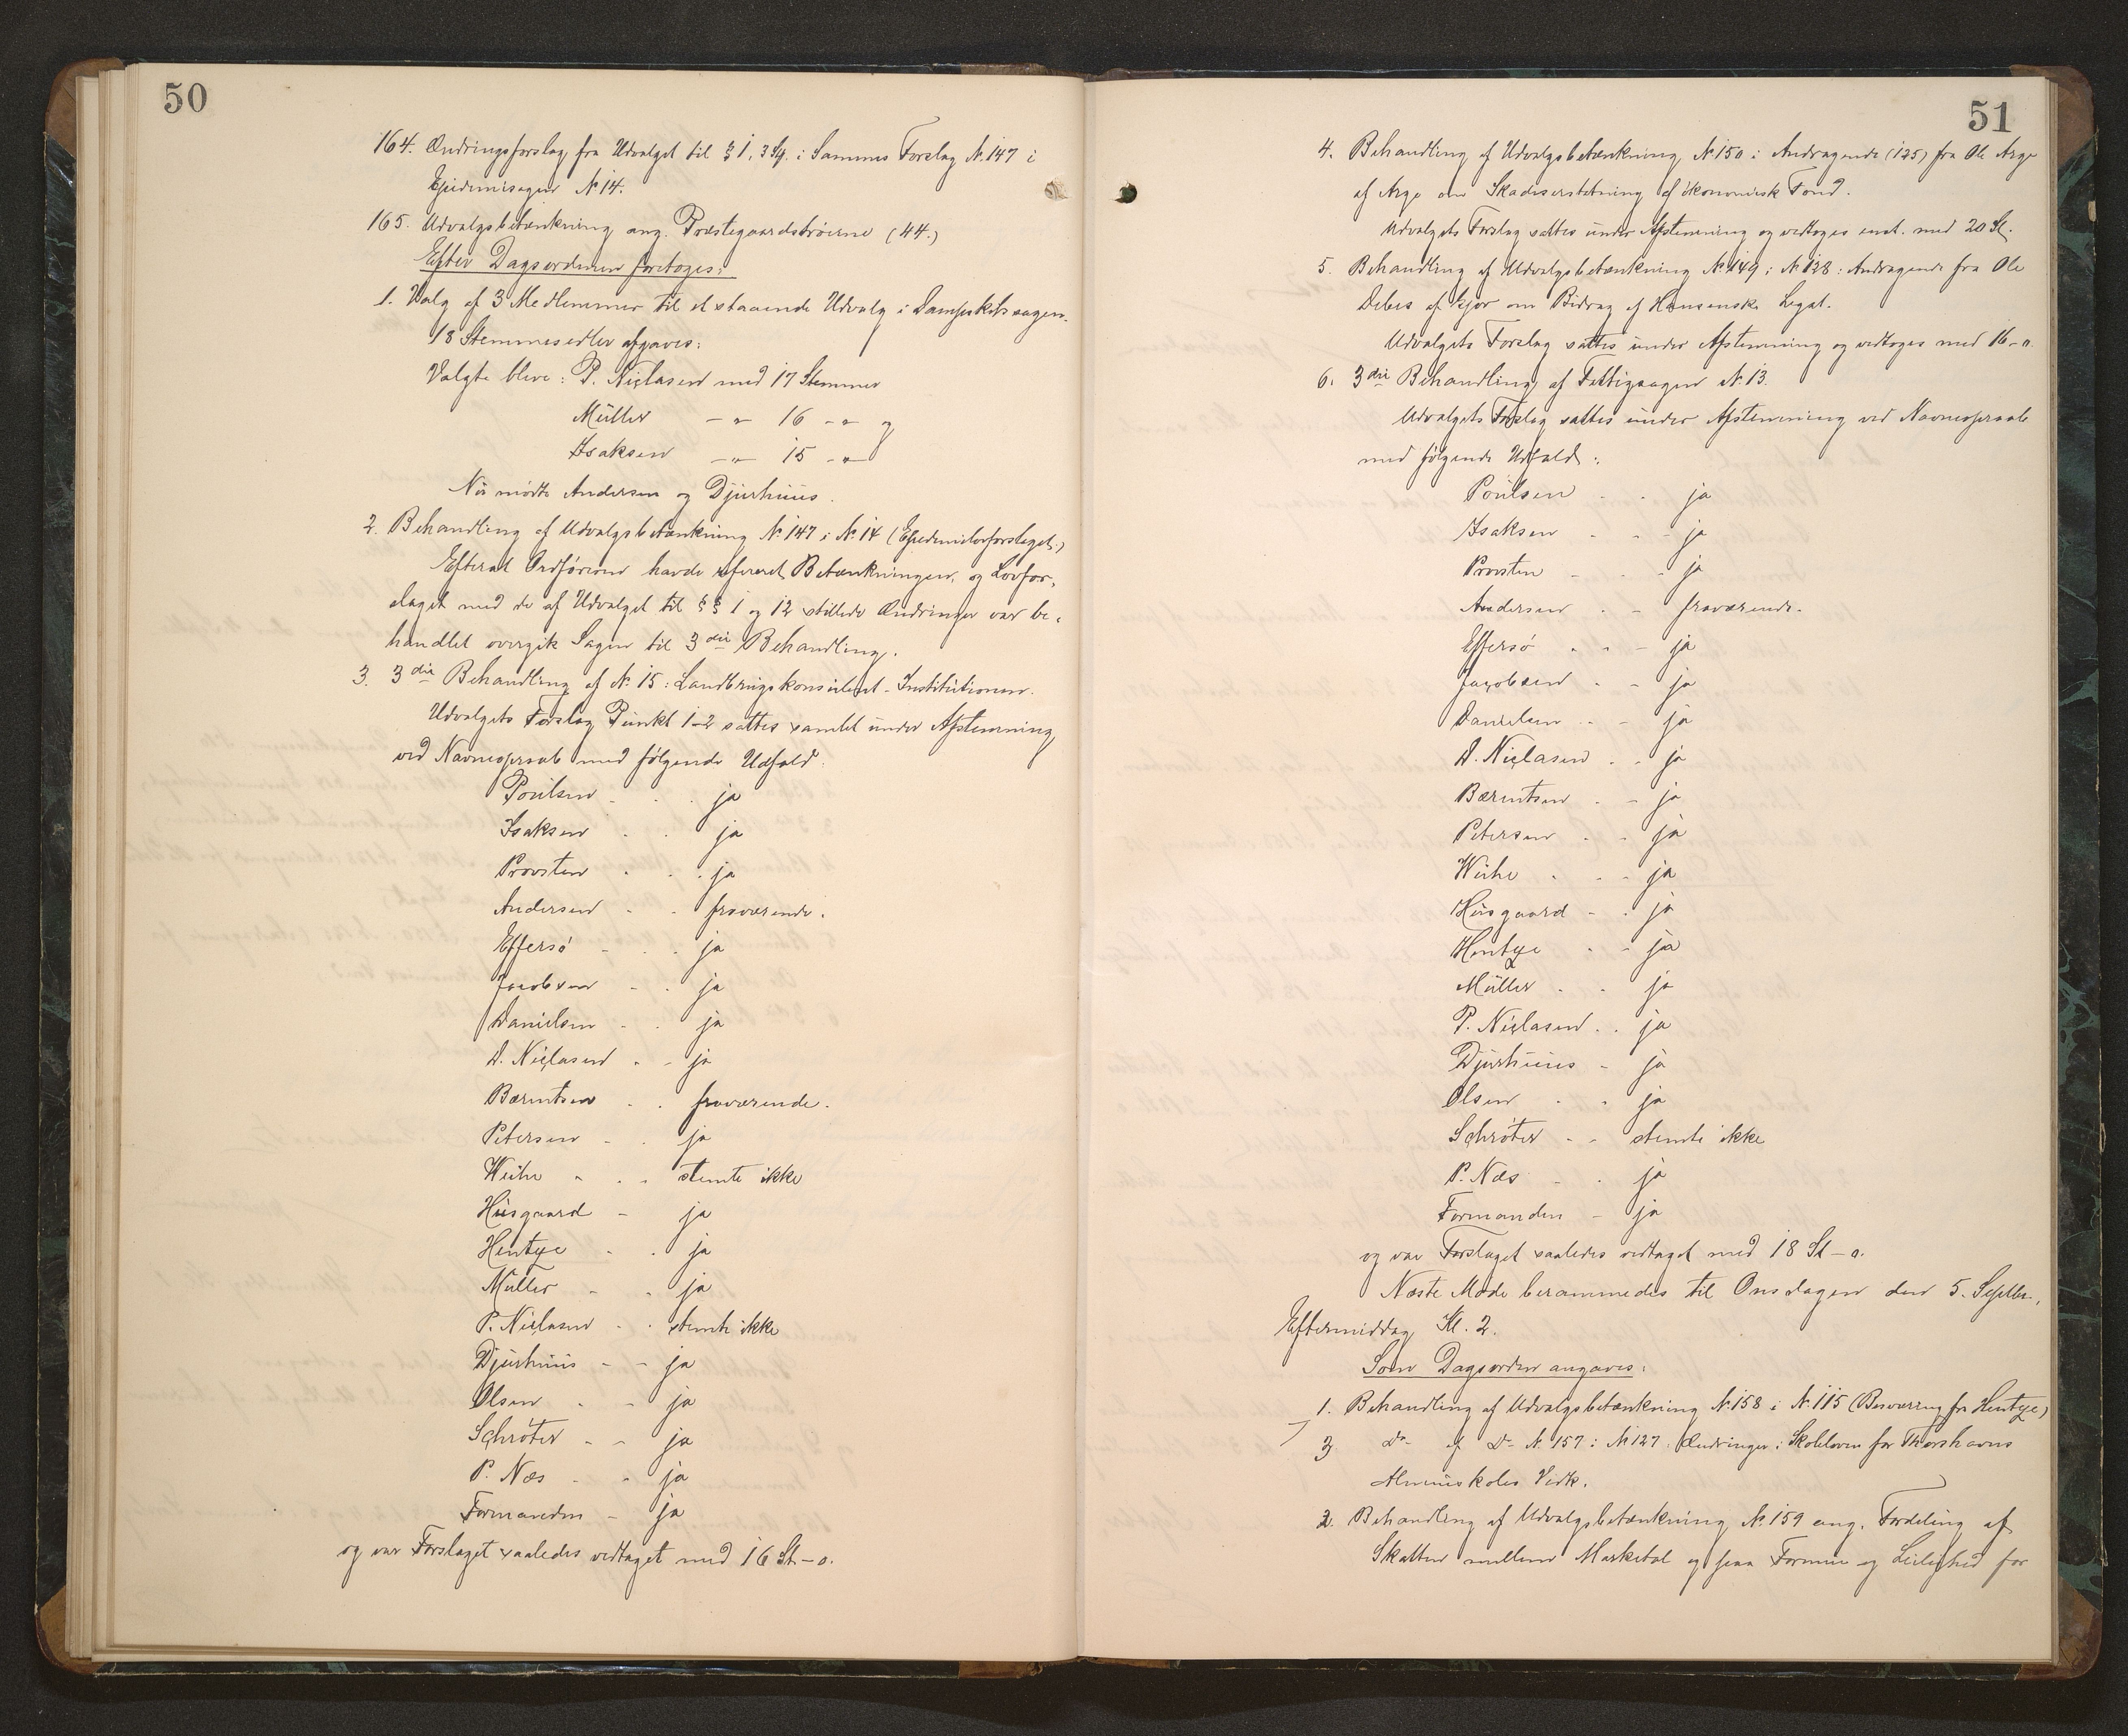 50
164. Ændringsforslag fra Udvalget til § 1, 3 Stk. i Sammes Forslag N. 147 i
Epidemisagen N. 14.
165. Udvalgsbetænkning ang. Præstegaardstrøerne (44.)
Efter Dagsordenen foretoges:
1. Valg af 3 Medlemmer til et staaende Udvalg i Dampskibssagen.
18 Stemmesedler afgaves:
Valgte bleve: P. Niclasen med 17 Stemmer
Müller -"- 16 -"- og
Isaksen -"- 15 -"-
Nu mødte Andersen og Djurhuus.
2. Behandling af Udvalgsbetænkning N. 147 i N. 14 (Epidemilovforslaget.)
Efterat Ordføreren havde refereret Betænkningen, og Lovfor-
slaget med de af Udvalget til §§ 1 og 12 stillede Ændringer var be-
handlet overgik Sagen til 3die Behandling.
3. 3die Behandling af N. 15: Landbrugskonsulent-Institutionen.
Udvalgets Forslag Punkt 1-2 sattes samlet under Afstemning
ved Navneopraab med følgende Udfald:
Poulsen - - ja
Isaksen - - ja
Provsten - - ja
Andersen - - fraværende.
Effersö - - ja
Jacobsen - - ja
Danielsen - - ja
D. Niclasen - - ja
Bærentsen - - fraværende.
Petersen - - ja
Weihe - - stemte ikke
Husgaard - ja
Hentze - - ja
Müller - - ja
P. Niclasen - - stemte ikke
Djurhuus - - ja
Olsen - - ja
Schrøter - - ja
P. Næs - - ja
Formanden - ja
og var Forslaget saaledes vedtaget med 16 St-0.
51
4. Behandling af Udvalgsbetænkning N. 150 i Andragende (125) fra Ole Arge
af Arge om Skadeserstatning af økonomisk Fond.
Udvalgets Forslag sattes under Afstemning og vedtoges enst. med 20 St.
5. Behandling af Udvalgsbetænkning N. 149 i N. 128: Andragende fra Ole
Debes af Gjov om Bidrag af Hansenske Legat.
Udvalgets Forslag sattes under Afstemning og vedtoges med 16-0.
6. 3die Behandling af Fattigsagen N. 13.
Udvalgets Forslag sattes under Afstemning ved Navneopraab
med følgende Udfald:
Poulsen - - ja
Isaksen - - ja
Provsten - - ja
Andersen - - fraværende.
Effersö - - ja
Jacobsen - - ja
Danielsen - - ja
D. Niclasen - - ja
Bærentsen - - ja
Petersen - - ja
Weihe - - ja
Husgaard - - ja
Hentze - - ja
Müller - - ja
P. Niclasen - - ja
Djurhuus - ja
Olsen - - ja
Schrøter - - stemte ikke
P. Næs - - ja
Formanden - ja
og var Forslaget saaledes vedtaget med 18 St-0.
Næste Møde berammedes til Onsdagen den 5. Septbr.,
Eftermiddag Kl. 2.
Som Dagsorden angaves:
1. Behandling af Udvalgsbetænkning N. 158 i N. 115 (Besværing fra Hentze)
3. Do af Do N. 157 i N. 127: Ændringer i Skoleloven for Thorshavns
Almueskoles Vedk.
2. Behandling af Udvalgsbetænkning N. 159 ang. Fordeling af
Skatten mellem Marketal og paa Formue og Leilighed for